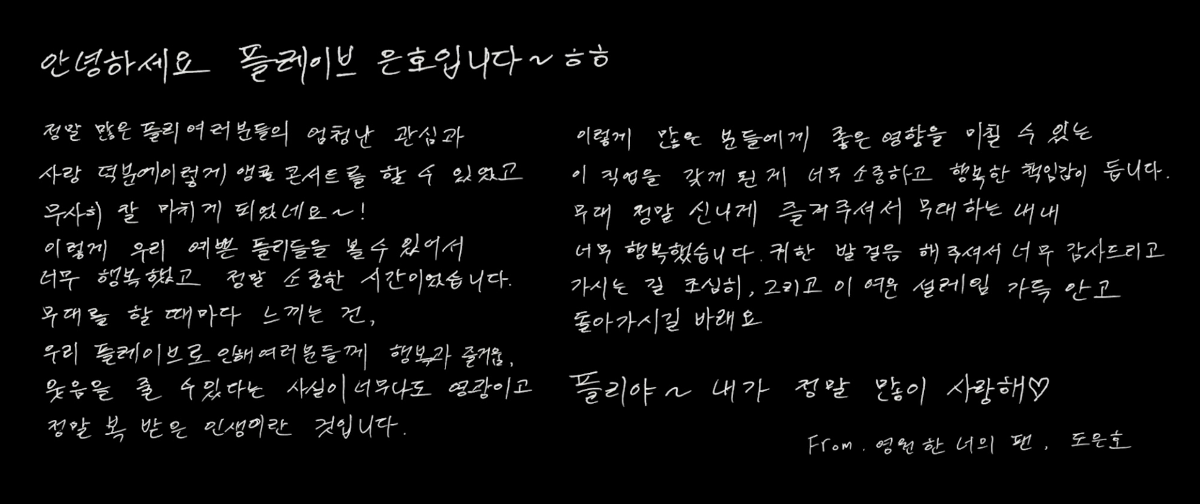 안녕하세요 플레이브 은호입니다~ㅎㅎ
정말 많은 플리 여러분들의 엄청난 관심과
사랑 덕분에 이렇게 앵콜 콘서트를 할 수 있었고
무사히 잘 마치게 되었네요~!
이렇게 우리 예쁜 플리들을 볼 수 있어서
너무 행복했고 정말 소중한 시간이었습니다.
무대를 할 때마다 느끼는 건,
우리 플레이브로 인해 여러분들께 행복과 즐거움,
웃음을 줄 수 있다는 사실이 너무나도 영광이고
정말 복 받은 인생이란 것입니다.
이렇게 많은 분들에게 좋은 영향을 미칠 수 있는
이 직업을 갖게 된 게 너무 소중하고 행복한 책임감이 듭니다.
무대 정말 신나게 즐겨주셔서 무대하는 내내
너무 행복했습니다. 귀한 발걸음 해주셔서 너무 감사드리고
가시는 길 조심히, 그리고 이 여운 설레임 가득 안고
돌아가시길 바래요
플리야~ 내가 정말 많이 사랑해♡
From. 영원한 너의 팬, 도은호